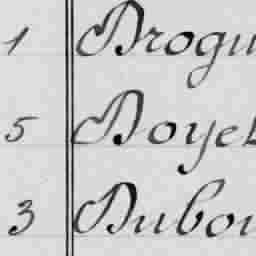 1 Drogu
5 Doyet
3 Dubou